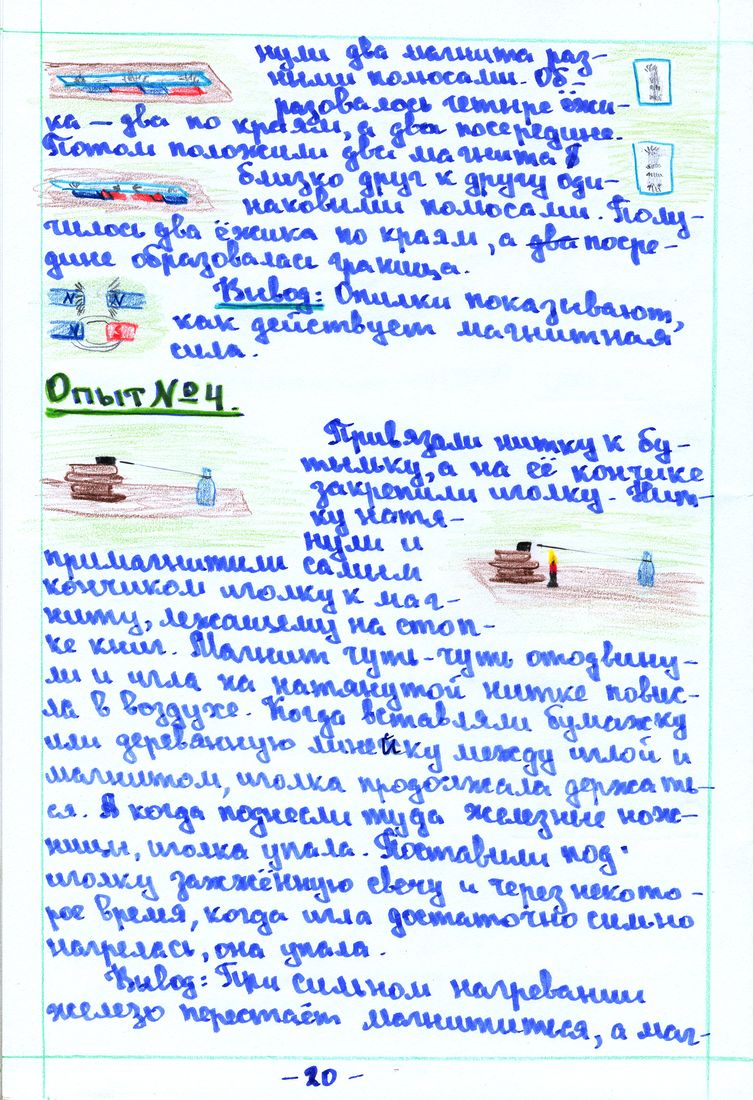 нули два магнита раз-
ными полюсами. Об-
разовалось четыре ёжи-
ка — два по краям, а два посередине.
Потом положили два магнита
близко друг к другу оди-
наковыми полюсами. Полу-
чилось два ёжика по краям, а два посре-
дине образовалась граница.
N N
N S
Вывод: Опилки показывают,
как действует магнитная
сила.
Опыт №4.
Привязали нитку к бу-
тыльку, а на её кончике
закрепили иголку. Нит-
ку натя-
нули и
примагнитили самым
кончиком иголку к маг-
ниту, лежащему на стоп-
ке книг. Магнит чуть-чуть отодвину-
ли и игла на натянутой нитке повис-
ла в воздухе. Когда вставляли бумажку
или деревянную линейку между иглой и
магнитом, иголка продолжала держать-
ся. А когда поднесли туда железные нож-
ницы, иголка упала. Поставили под
иголку зажжённую свечу и через некото-
рое время, когда игла достаточно сильно
нагрелась, она упала.
Вывод: При сильном нагревании
железо перестаёт магнититься, а маг-
- 20 -